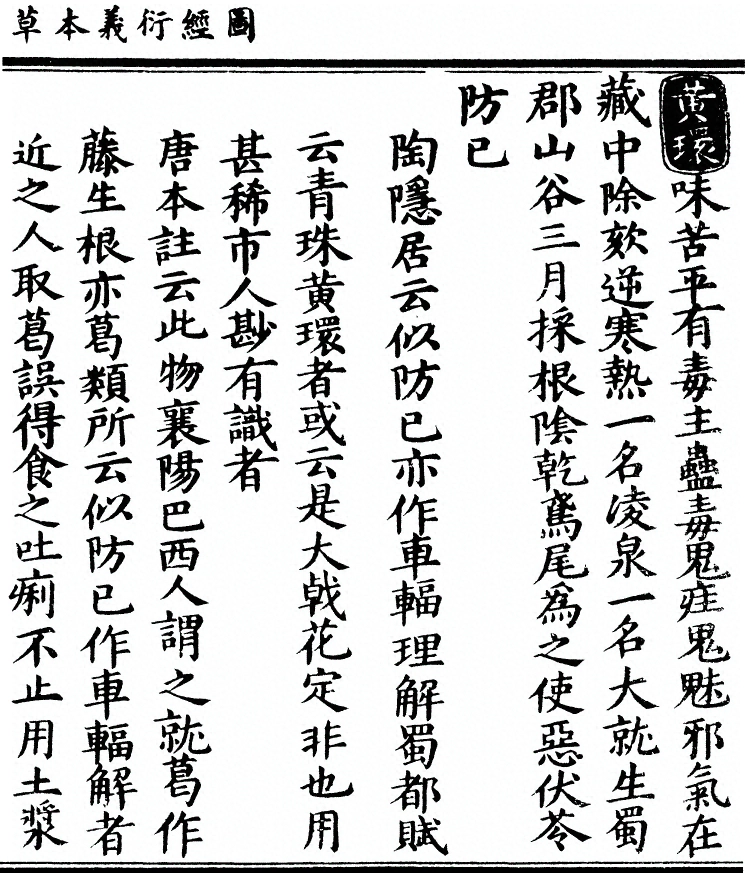 圖經衍義本草
黃環味苦平有毒主蠱毒鬼疰鬼魅邪氣在
藏中除欬逆寒熱一名淩泉一名大就生蜀
郡山谷三月採根陰乾鳶尾爲之使惡伏苓
防已
陶隱居云似防已亦作車輻理解蜀都賦
云青珠黃環者或云是大戟花定非也用
甚稀市人尠有識者
唐本註云此物襄陽巴西人謂之就葛作
藤生根亦葛類所云似防已作車輻解者
近之人取葛誤得食之吐痢不止用土漿